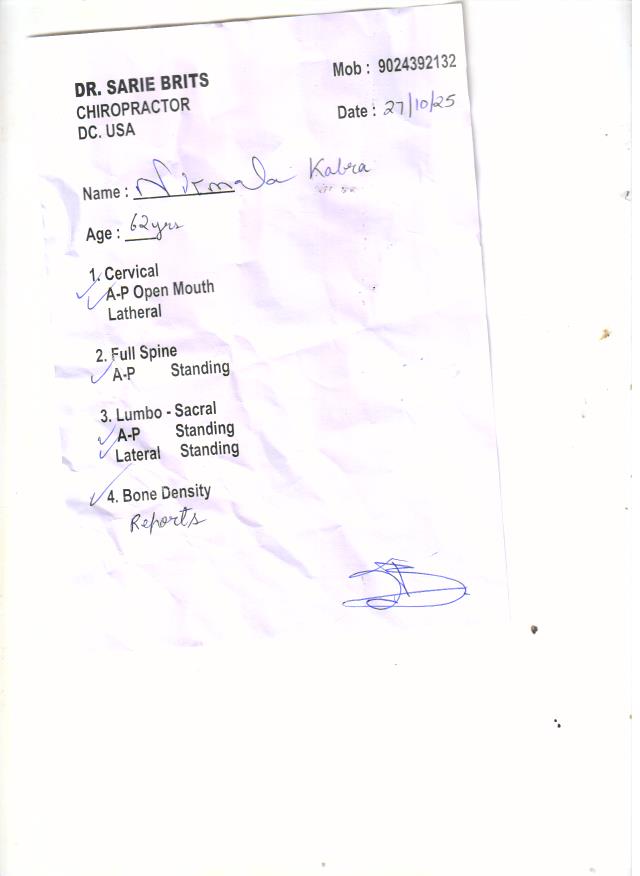 DR. SARIE BRITS
CHIROPRACTOR
DC. USA
Mob : 9024392132
Date : 27/10/25
Name : Nirmala Kabra
Age : 62yrs
1. Cervical
A-P Open Mouth
Latheral
2. Full Spine
A-P Standing
3. Lumbo - Sacral
A-P Standing
Lateral Standing
4. Bone Density
Reports